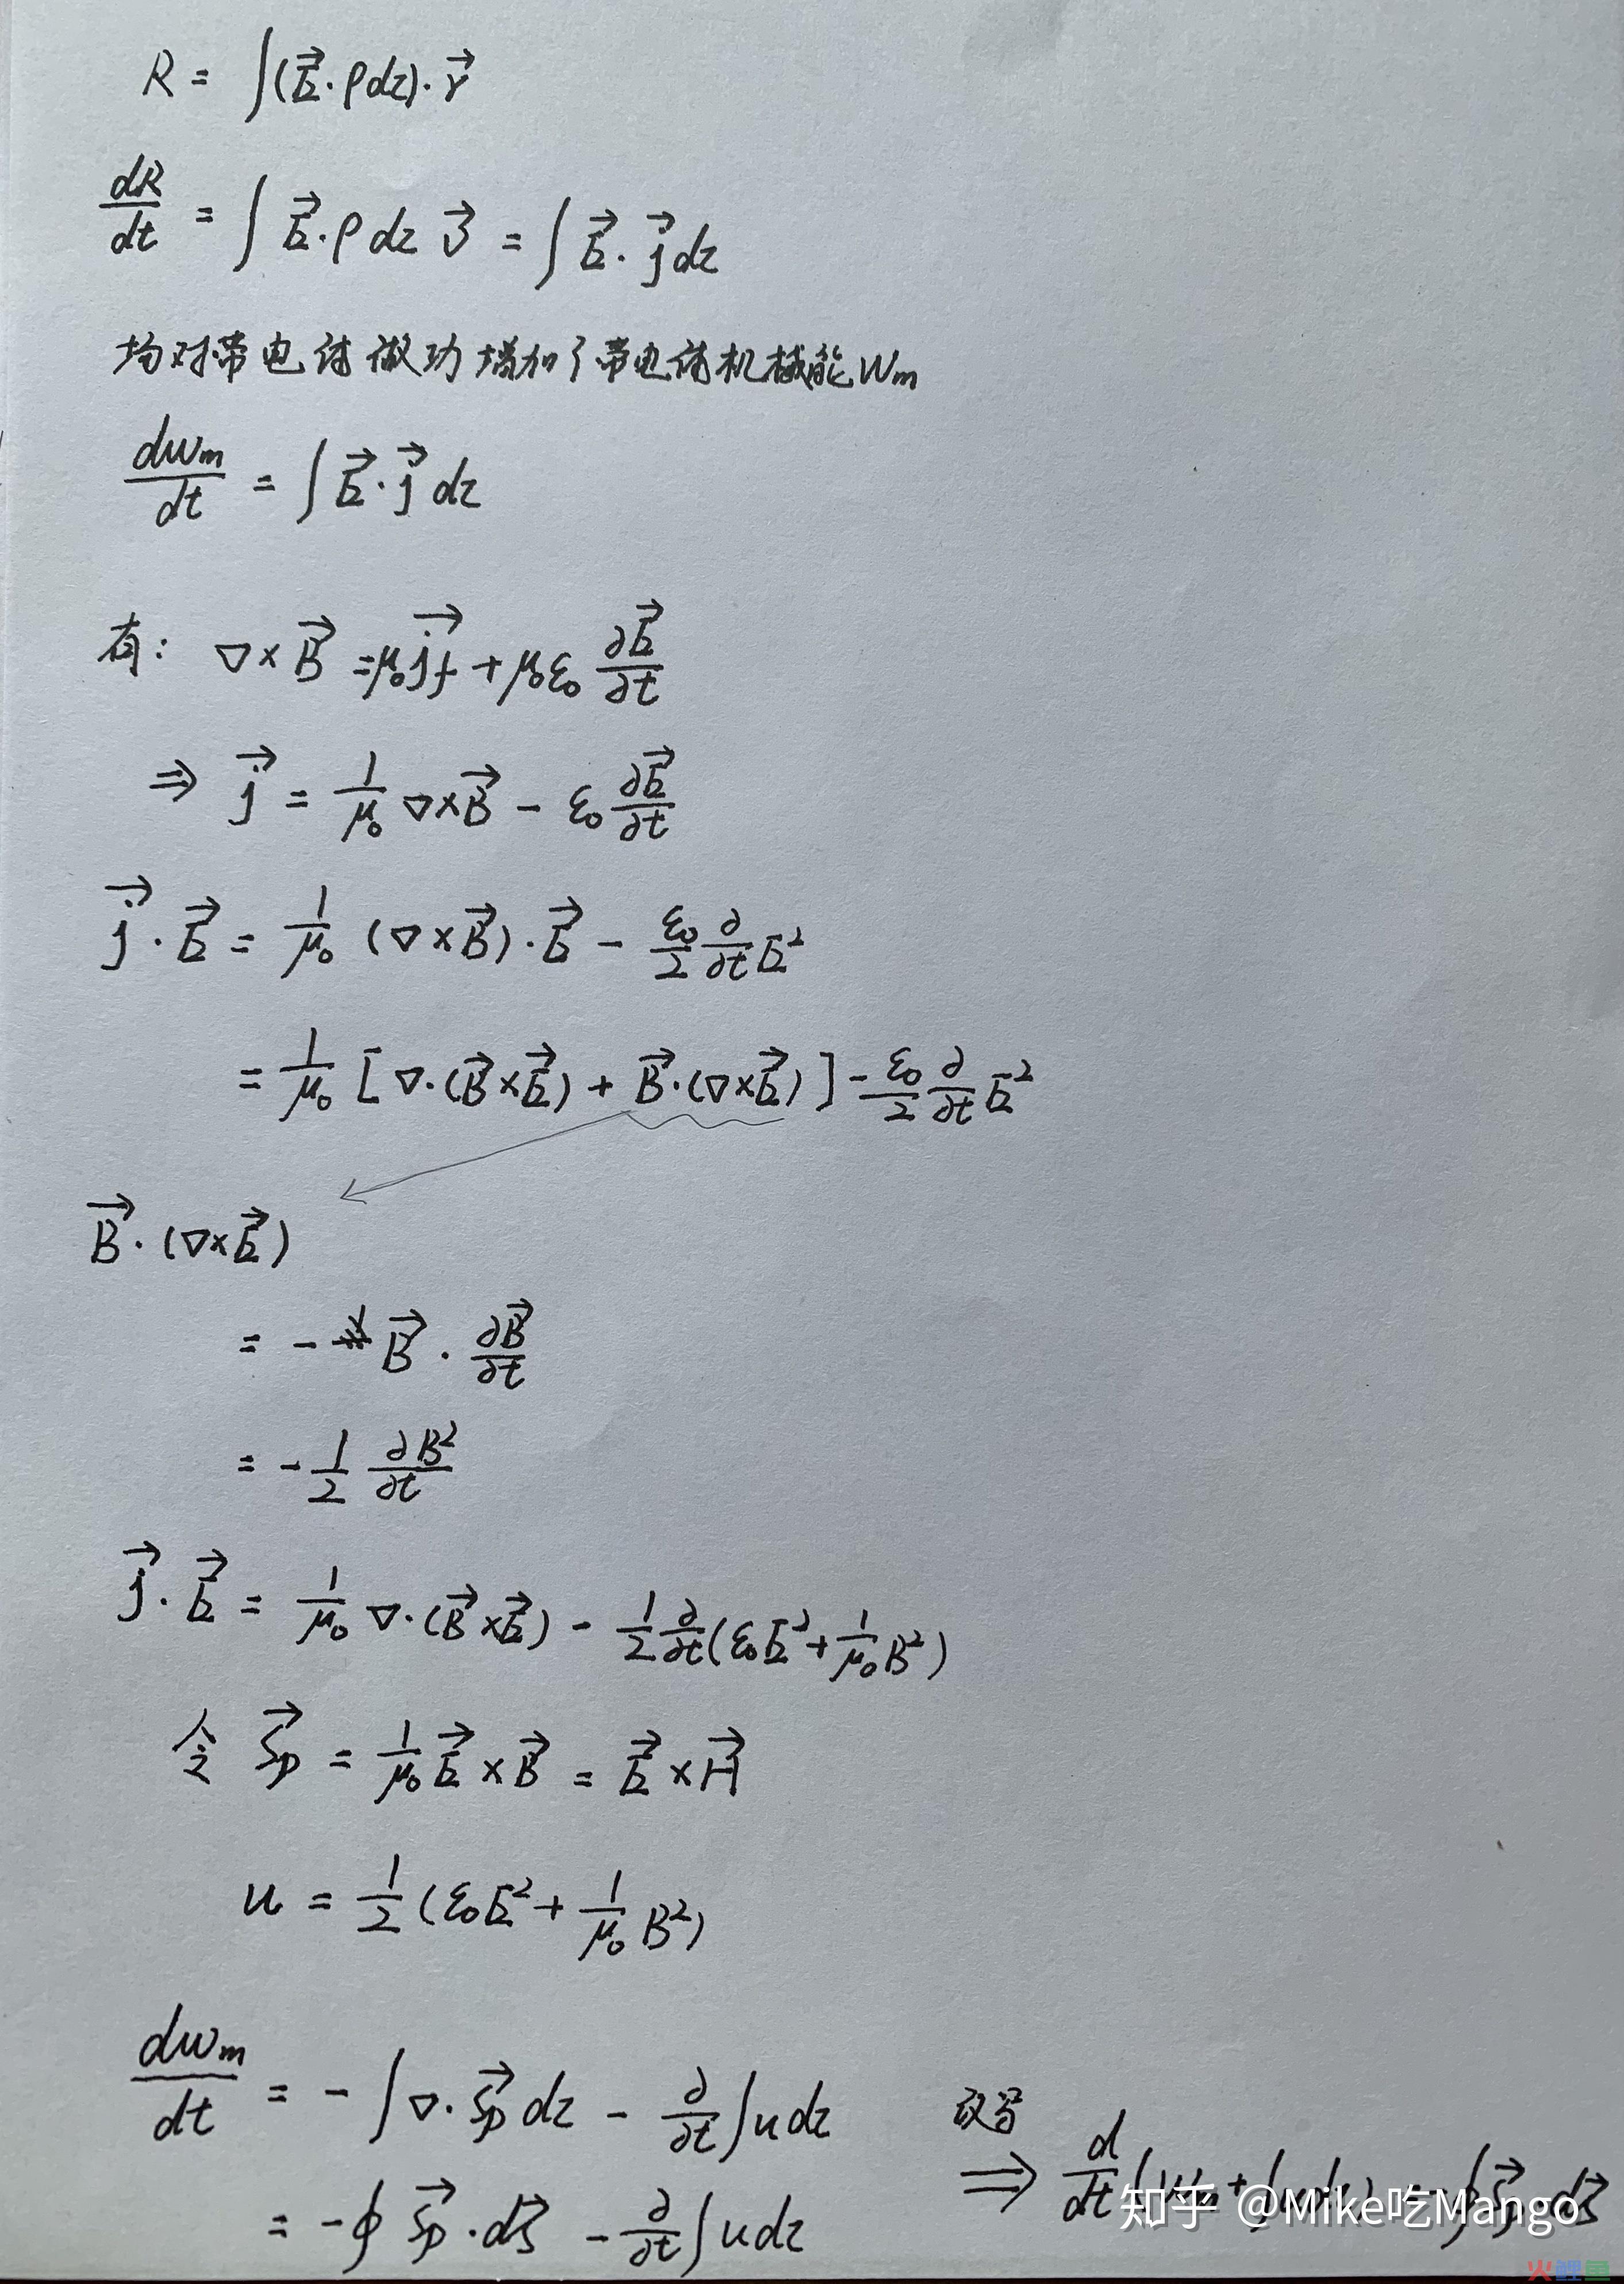 R = ∫(E⃗·ρdz)·r⃗
dR/dt = ∫ E⃗·ρ dz v⃗ = ∫ E⃗·j⃗ dz
均对带电体做功增加了带电体机械能Wm
dWm/dt = ∫ E⃗·j⃗ dz
有: ∇×B⃗ = μ₀j⃗f + μ₀ε₀ ∂E⃗/∂t
⇒ j⃗ = 1/μ₀ ∇×B⃗ - ε₀ ∂E⃗/∂t
j⃗·E⃗ = 1/μ₀ (∇×B⃗)·E⃗ - ε₀/2 ∂/∂t E²
= 1/μ₀ [∇·(B⃗×E⃗) + B⃗·(∇×E⃗)] - ε₀/2 ∂/∂t E²
B⃗·(∇×E⃗)
= - B⃗·∂B⃗/∂t
= -1/2 ∂B²/∂t
j⃗·E⃗ = 1/μ₀ ∇·(B⃗×E⃗) - 1/2 ∂/∂t(ε₀E²+1/μ₀ B²)
令 S⃗p = 1/μ₀ E⃗×B⃗ = E⃗×H⃗
u = 1/2 (ε₀E²+1/μ₀ B²)
dWm/dt = -∫∇·S⃗p dz - ∂/∂t∫u dz
= -∮ S⃗p·dS⃗ - ∂/∂t∫u dz
改写
⇒ d/dt(Wm+∫udz) = -∮S⃗p·dS⃗
知乎 @Mike吃Mango
火鲤鱼